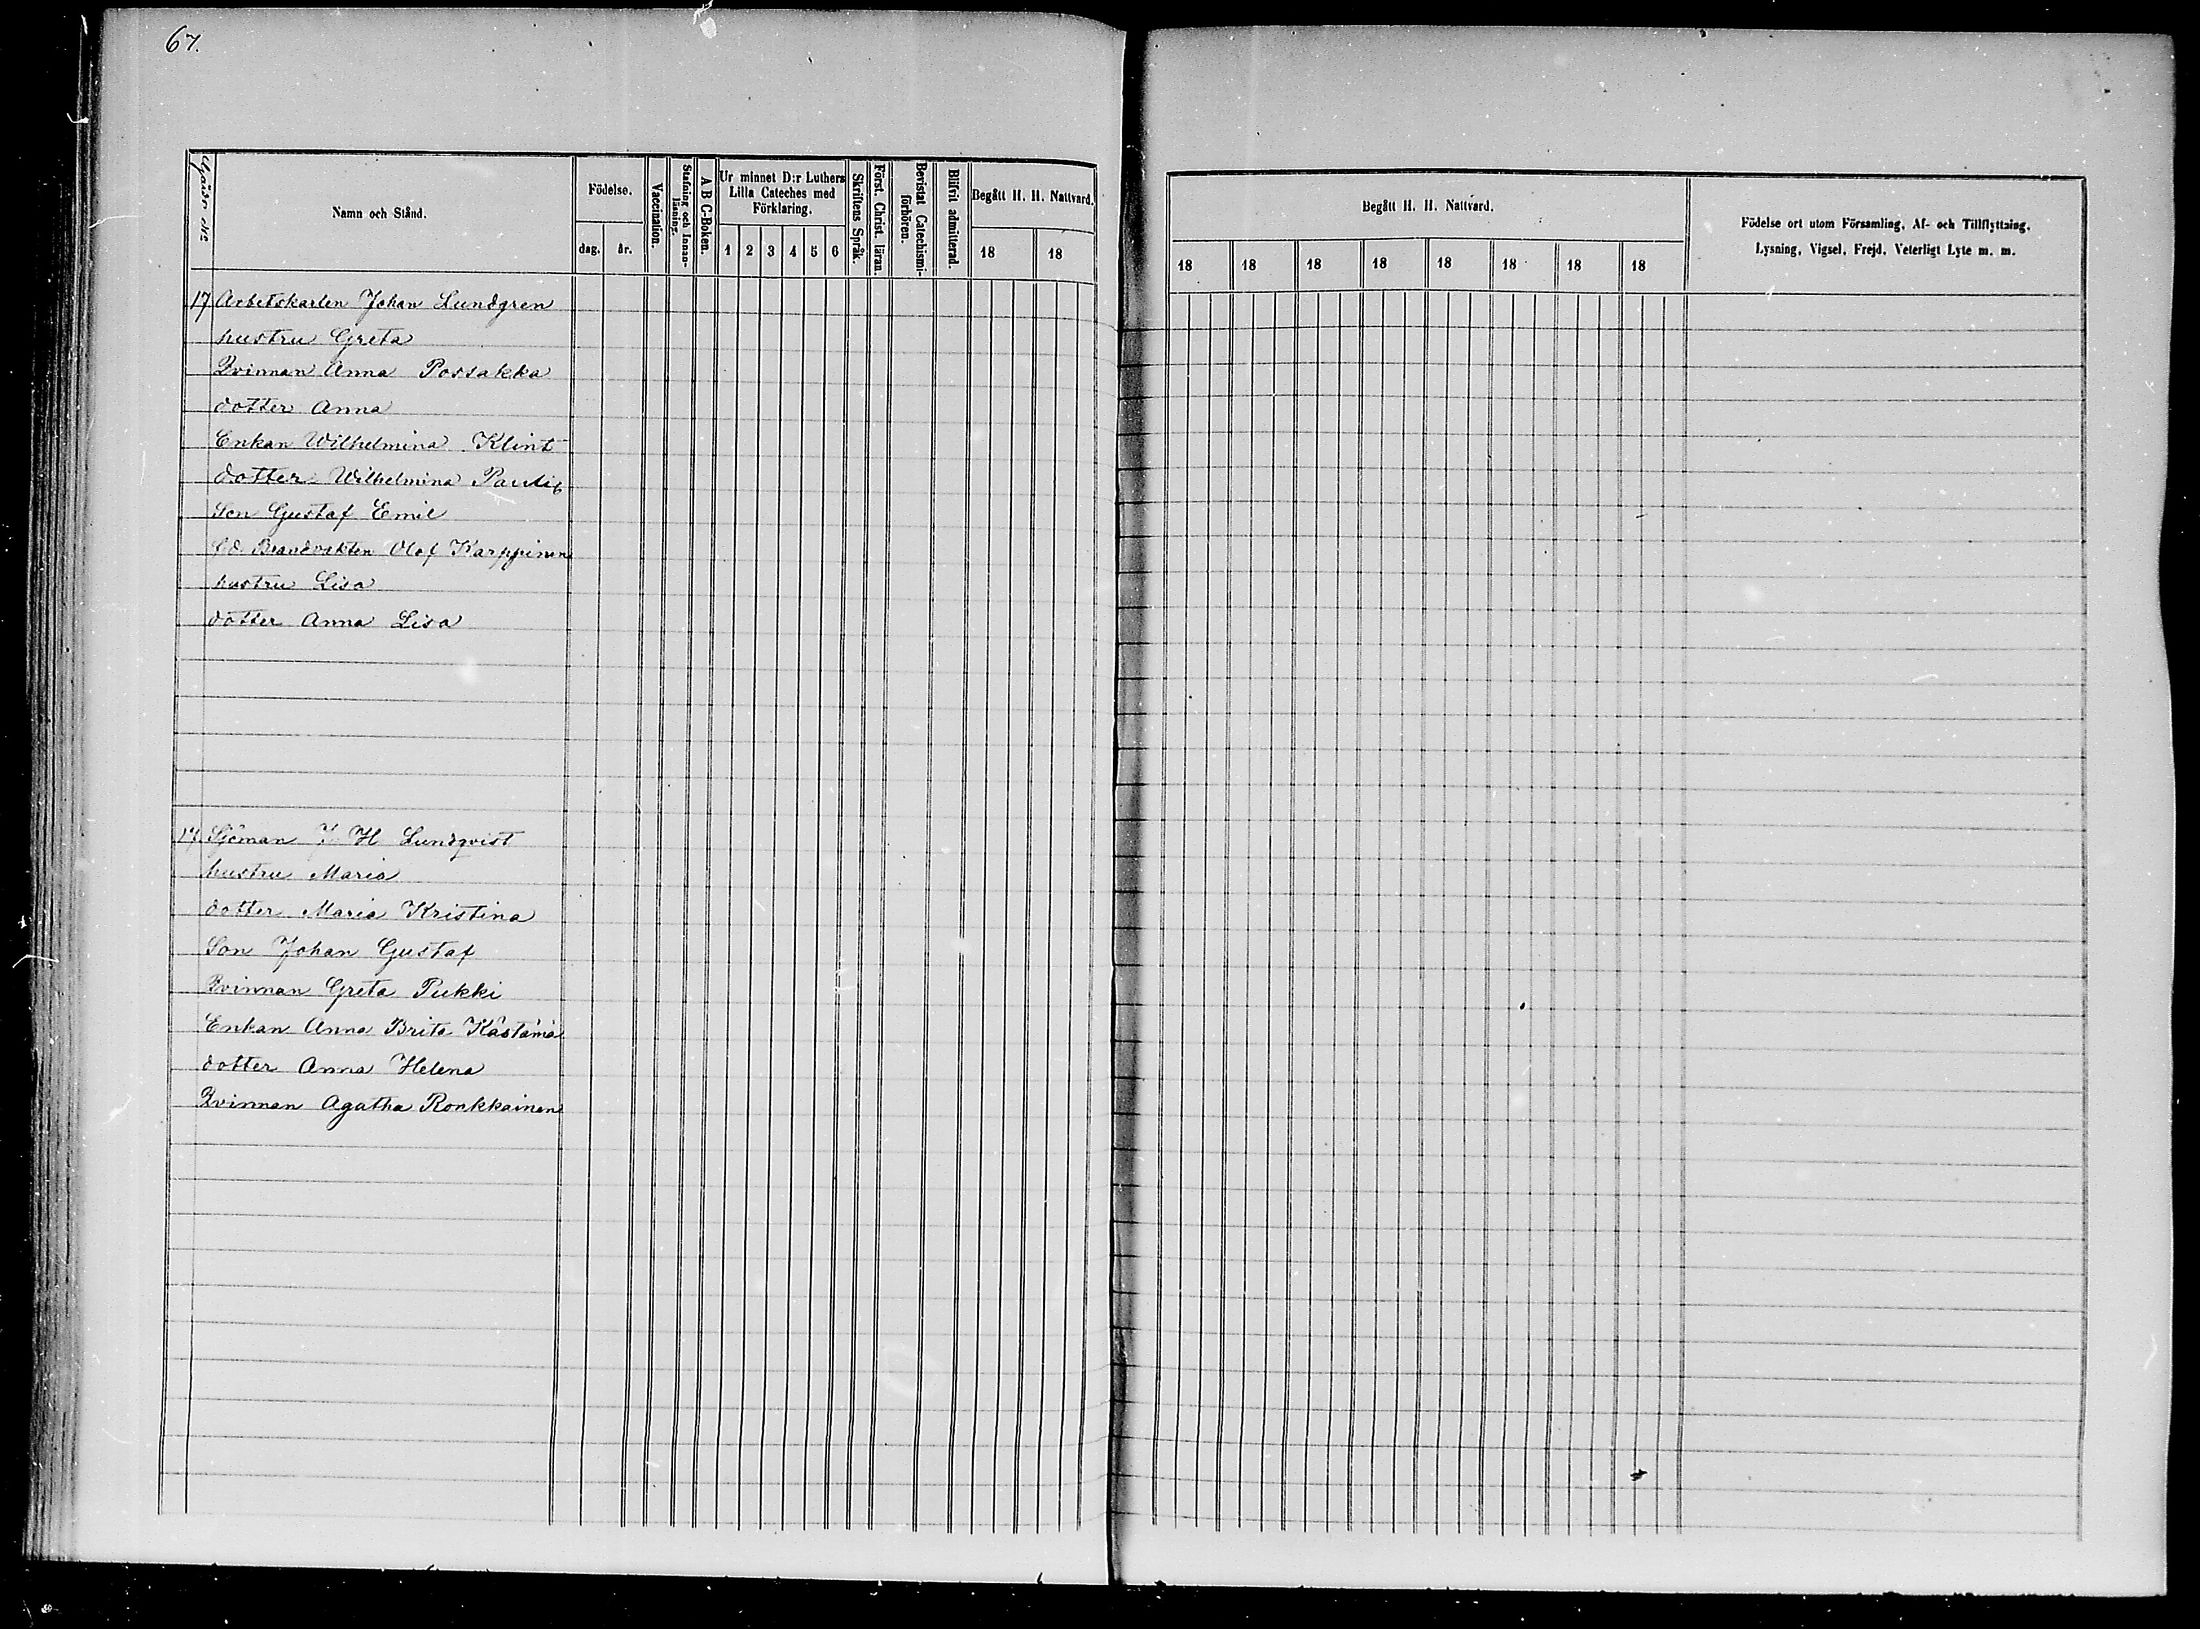 67.
Gårds No
Namn och Stånd.
Födelse.
dag.
år.
Vaccination.
Stafning och Innan-
läsning.
A B C-Boken.
Ur minnet D:r Luthers
Lilla Cateches med
Förklaring.
1 2 3 4 5 6
Skriftens Språk.
Först. Christ. läran.
Bevistat Catechismi-
förhören.
Blifvit admitterad.
Begått H. H. Nattvard.
18 18
Begått H. H. Nattvard.
18 18 18 18 18 18 18 18
Födelse ort utom Församling, Af- och Tillflyttning,
Lysning, Vigsel, Frejd, Veterligt Lyte m. m.
17 Arbetskarlen Johan Lundgren
hustru Greta
Qvinnan Anna Possakka
dotter Anna
Enkan Wilhelmina Klint
dotter Wilhelmina
Son Gustaf Emil
f.d. Brandvakten Olof Karppinen
hustru Lisa
dotter Anna Lisa
17. Sjöman J. H Lundqvist
hustru Maria
dotter Maria Kristina
Son Johan Gustaf
Qvinnan Greta Pukki
Enkan Anna Brita Kästämä
dotter Anna Helena
Qvinnan Agatha Ronkkainen